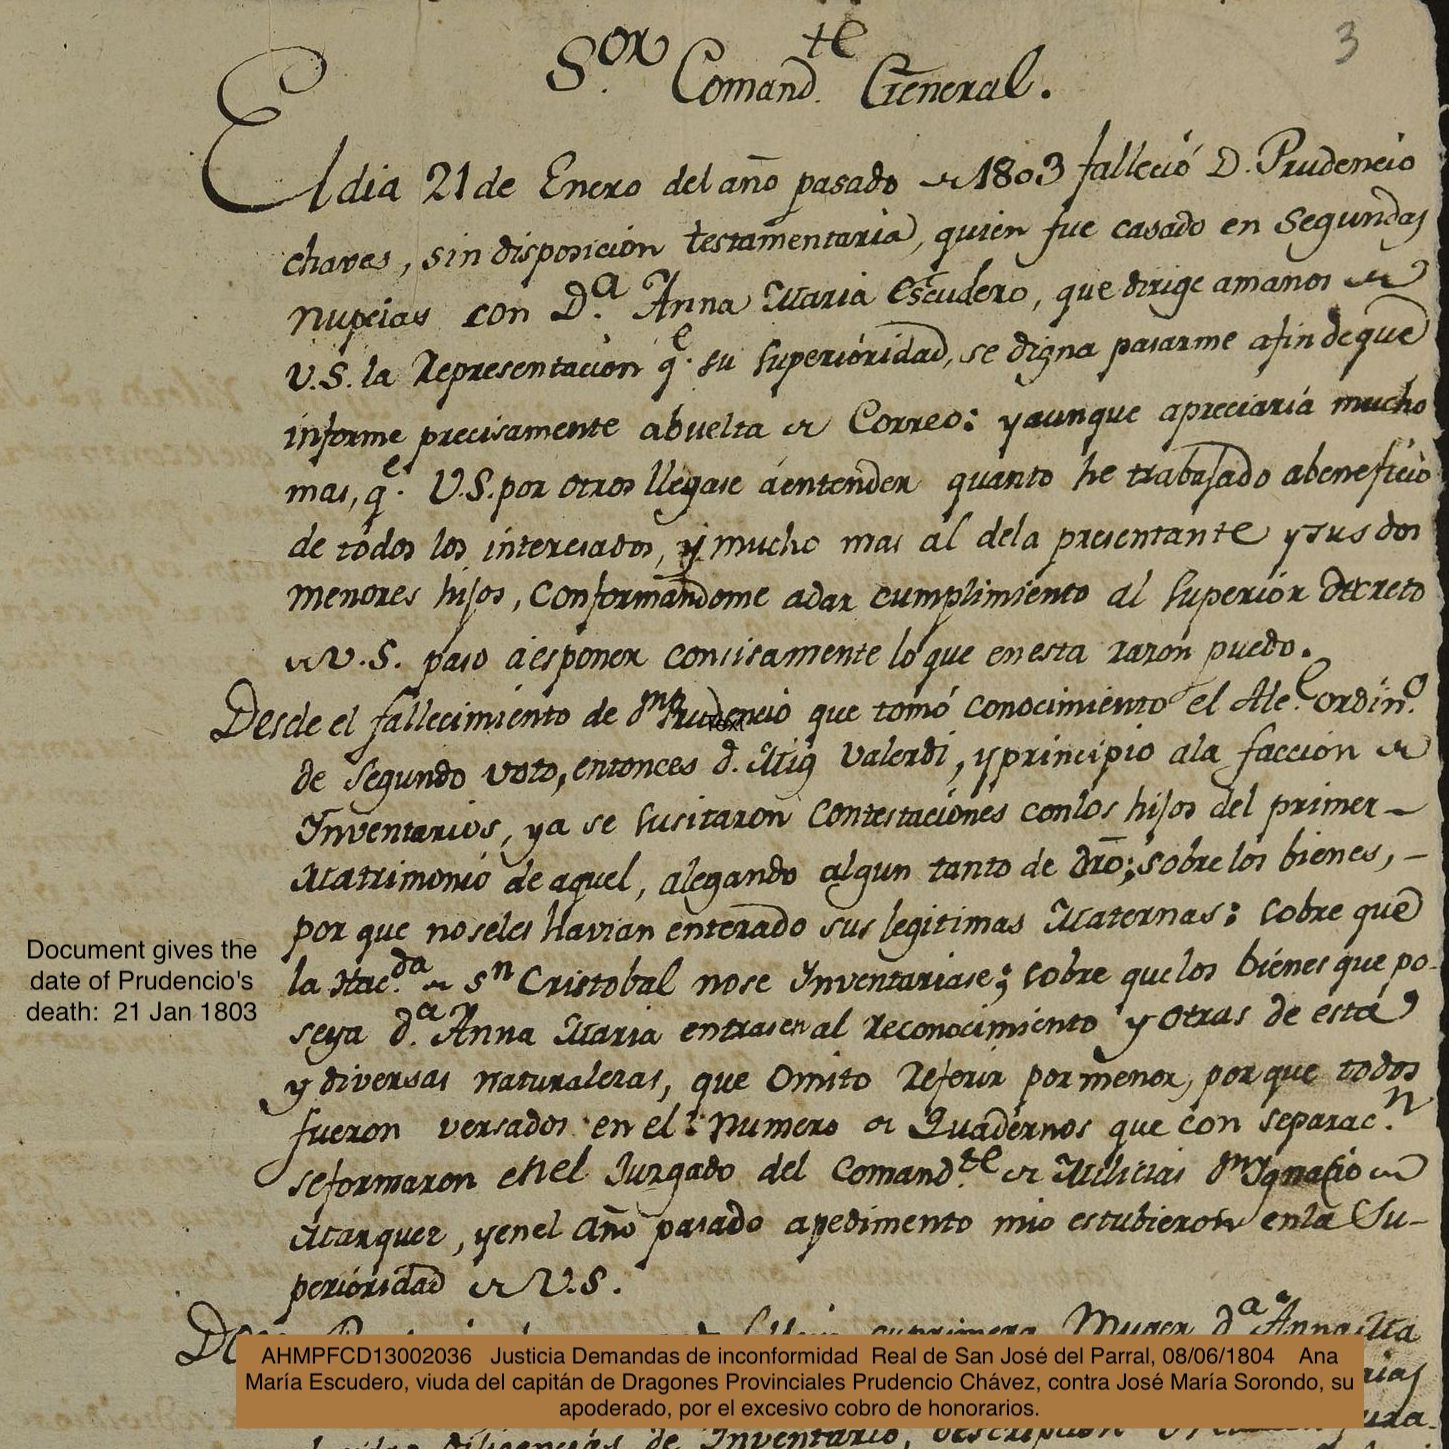 3
S.or Comand.te General.
El dia 21 de Enero del año pasado de 1803 falleció D. Prudencio
chaves, sin disposición testamentaria, quien fue casado en Segundas
nupcias con D.a Anna Maria Escudero, que dirige amanos de
V.S. la Representacion q.e su Superióridad, se digna pasarme afin deque
informe precisamente abuelta de Correo: yaunque apreciaria mucho
mas, q.e V.S. por otros llegase áentender quanto he trabajado abeneficio
de todos los interesados, y mucho mas al dela presentante ysus dos
menores hijos, Conformandome adar cumplimiento al Superior decreto
de V.S. paso áesponer concisamente lo que enesta razon puedo.
Desde el fallecimiento de Dn Prudencio que tomó conocimiento el Alc.e ordin.o
Text
de Segundo voto, entonces d. Mig Valerdi, y principio ala facción de
Ynventarios, ya se Susitaron Contestaciónes conlos hijos del primer-
Matrimonió de aquel, alegando algun tanto de dro; sobre los bienes, -
por que noseles havian enterado sus legitimas Maternas: sobre que
la Hac.da de Sn Cristobal nose Ynventariase; sobre quelos bienes que po-
seya d.a Anna Maria entrasen al Reconocimiento y otras de esta
y diversas naturalezas, que Omito Referir por menor, por que todos
fueron versados en el numero de Quadernos que con separac.n
seformaron enel Juzgado del Comand.te de Milicias Dn Ygnacio de
Marquez, yenel año pasado apedimento mio estubieron enla Su-
perióridad de V.S.
Document gives the
date of Prudencio's
death: 21 Jan 1803
su primera Muger d.a Anna Ma
AHMPFCD13002036 Justicia Demandas de inconformidad Real de San José del Parral, 08/06/1804 Ana
María Escudero, viuda del capitán de Dragones Provinciales Prudencio Chávez, contra José María Sorondo, su
apoderado, por el excesivo cobro de honorarios.
diligencias de Ynventario,